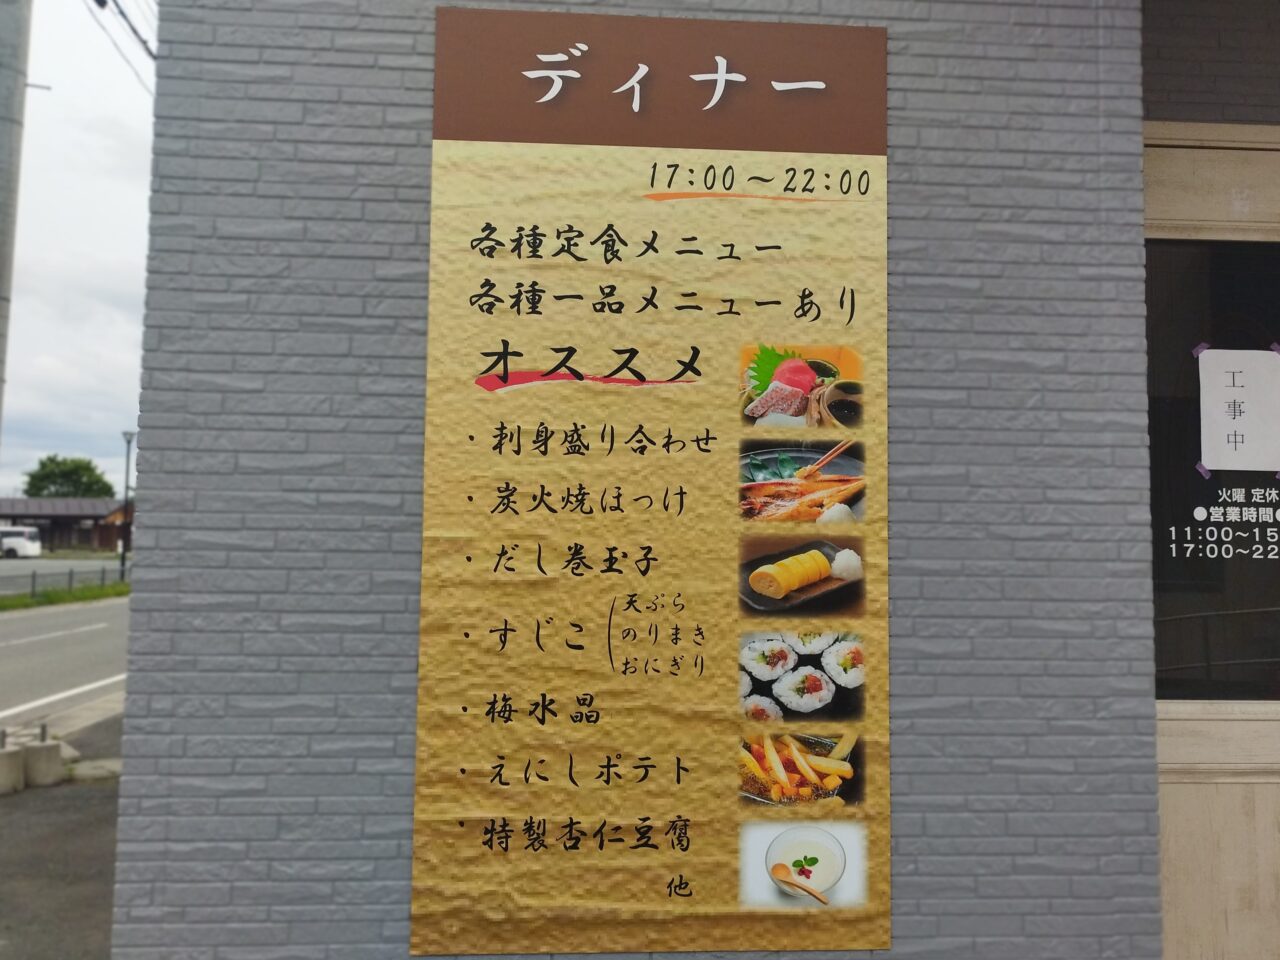 ディナー
17:00～22:00
各種定食メニュー
各種一品メニューあり
オススメ
・刺身盛り合わせ
・炭火焼ほっけ
・だし巻玉子
・すじこ
天ぷら
のりまき
おにぎり
・梅水晶
・えにしポテト
・特製杏仁豆腐
他
工事中
火曜 定休
●営業時間●
11:00～15
17:00～22